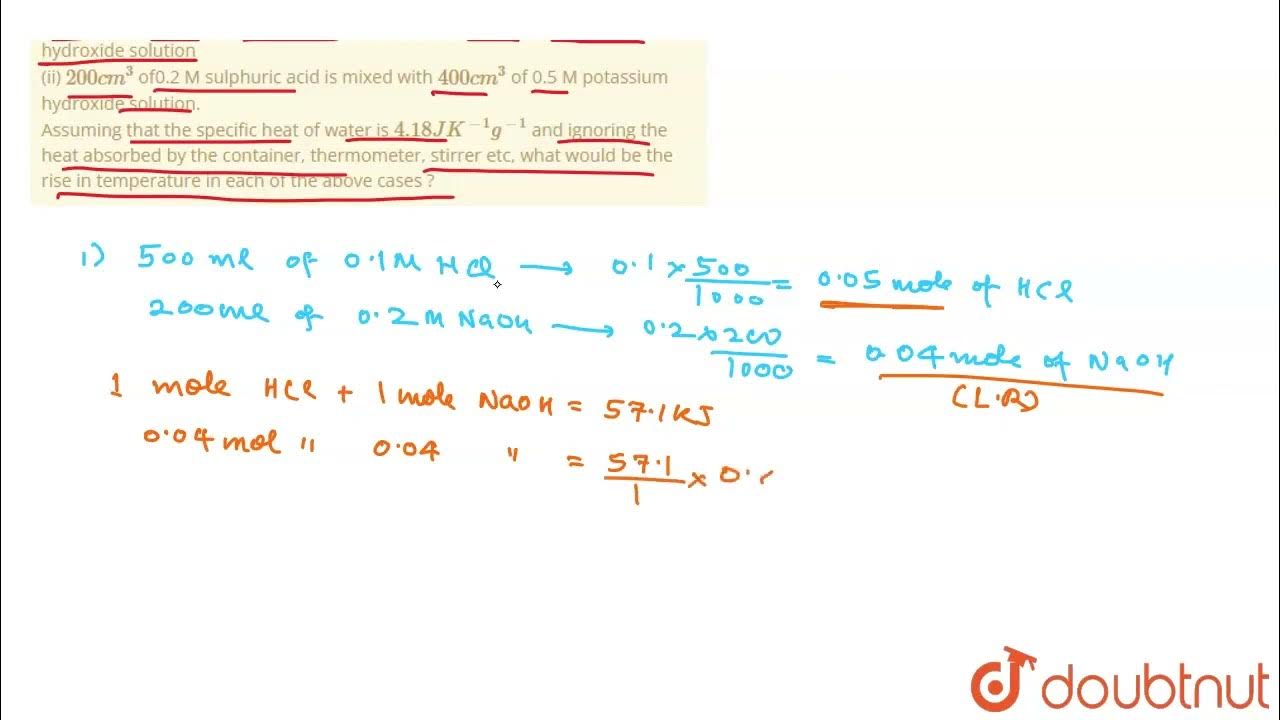 hydroxide solution
(ii) 200cm³ of0.2 M sulphuric acid is mixed with 400cm³ of 0.5 M potassium
hydroxide solution.
Assuming that the specific heat of water is 4.18JK⁻¹g⁻¹ and ignoring the
heat absorbed by the container, thermometer, stirrer etc, what would be the
rise in temperature in each of the above cases ?
1) 500 ml of 0.1M HCl → 0.1 × 500/1000 = 0.05 mole of HCl
200ml of 0.2M NaOH → 0.2×200/1000 = 0.04 mole of NaOH
(L.R)
1 mole HCl + 1 mole NaOH = 57.1KJ
0.04 mol " 0.04 " = 57.1/1 × 0.
doubtnut